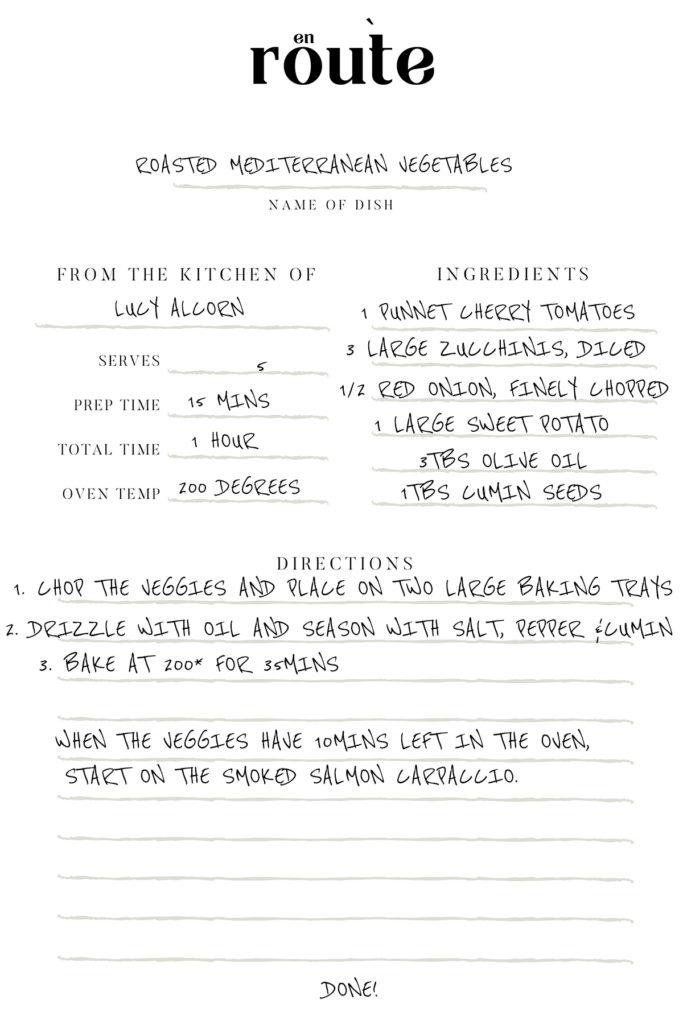 en
route
ROASTED MEDITERRANEAN VEGETABLES
NAME OF DISH
FROM THE KITCHEN OF
LUCY ALCORN
SERVES 5
PREP TIME 15 MINS
TOTAL TIME 1 HOUR
OVEN TEMP 200 DEGREES
INGREDIENTS
1 PUNNET CHERRY TOMATOES
3 LARGE ZUCCHINIS, DICED
1/2 RED ONION, FINELY CHOPPED
1 LARGE SWEET POTATO
3TBS OLIVE OIL
1TBS CUMIN SEEDS
DIRECTIONS
1. CHOP THE VEGGIES AND PLACE ON TWO LARGE BAKING TRAYS
2. DRIZZLE WITH OIL AND SEASON WITH SALT, PEPPER &CUMIN
3. BAKE AT 200* FOR 35MINS
WHEN THE VEGGIES HAVE 10MINS LEFT IN THE OVEN,
START ON THE SMOKED SALMON CARPACCIO.
DONE!